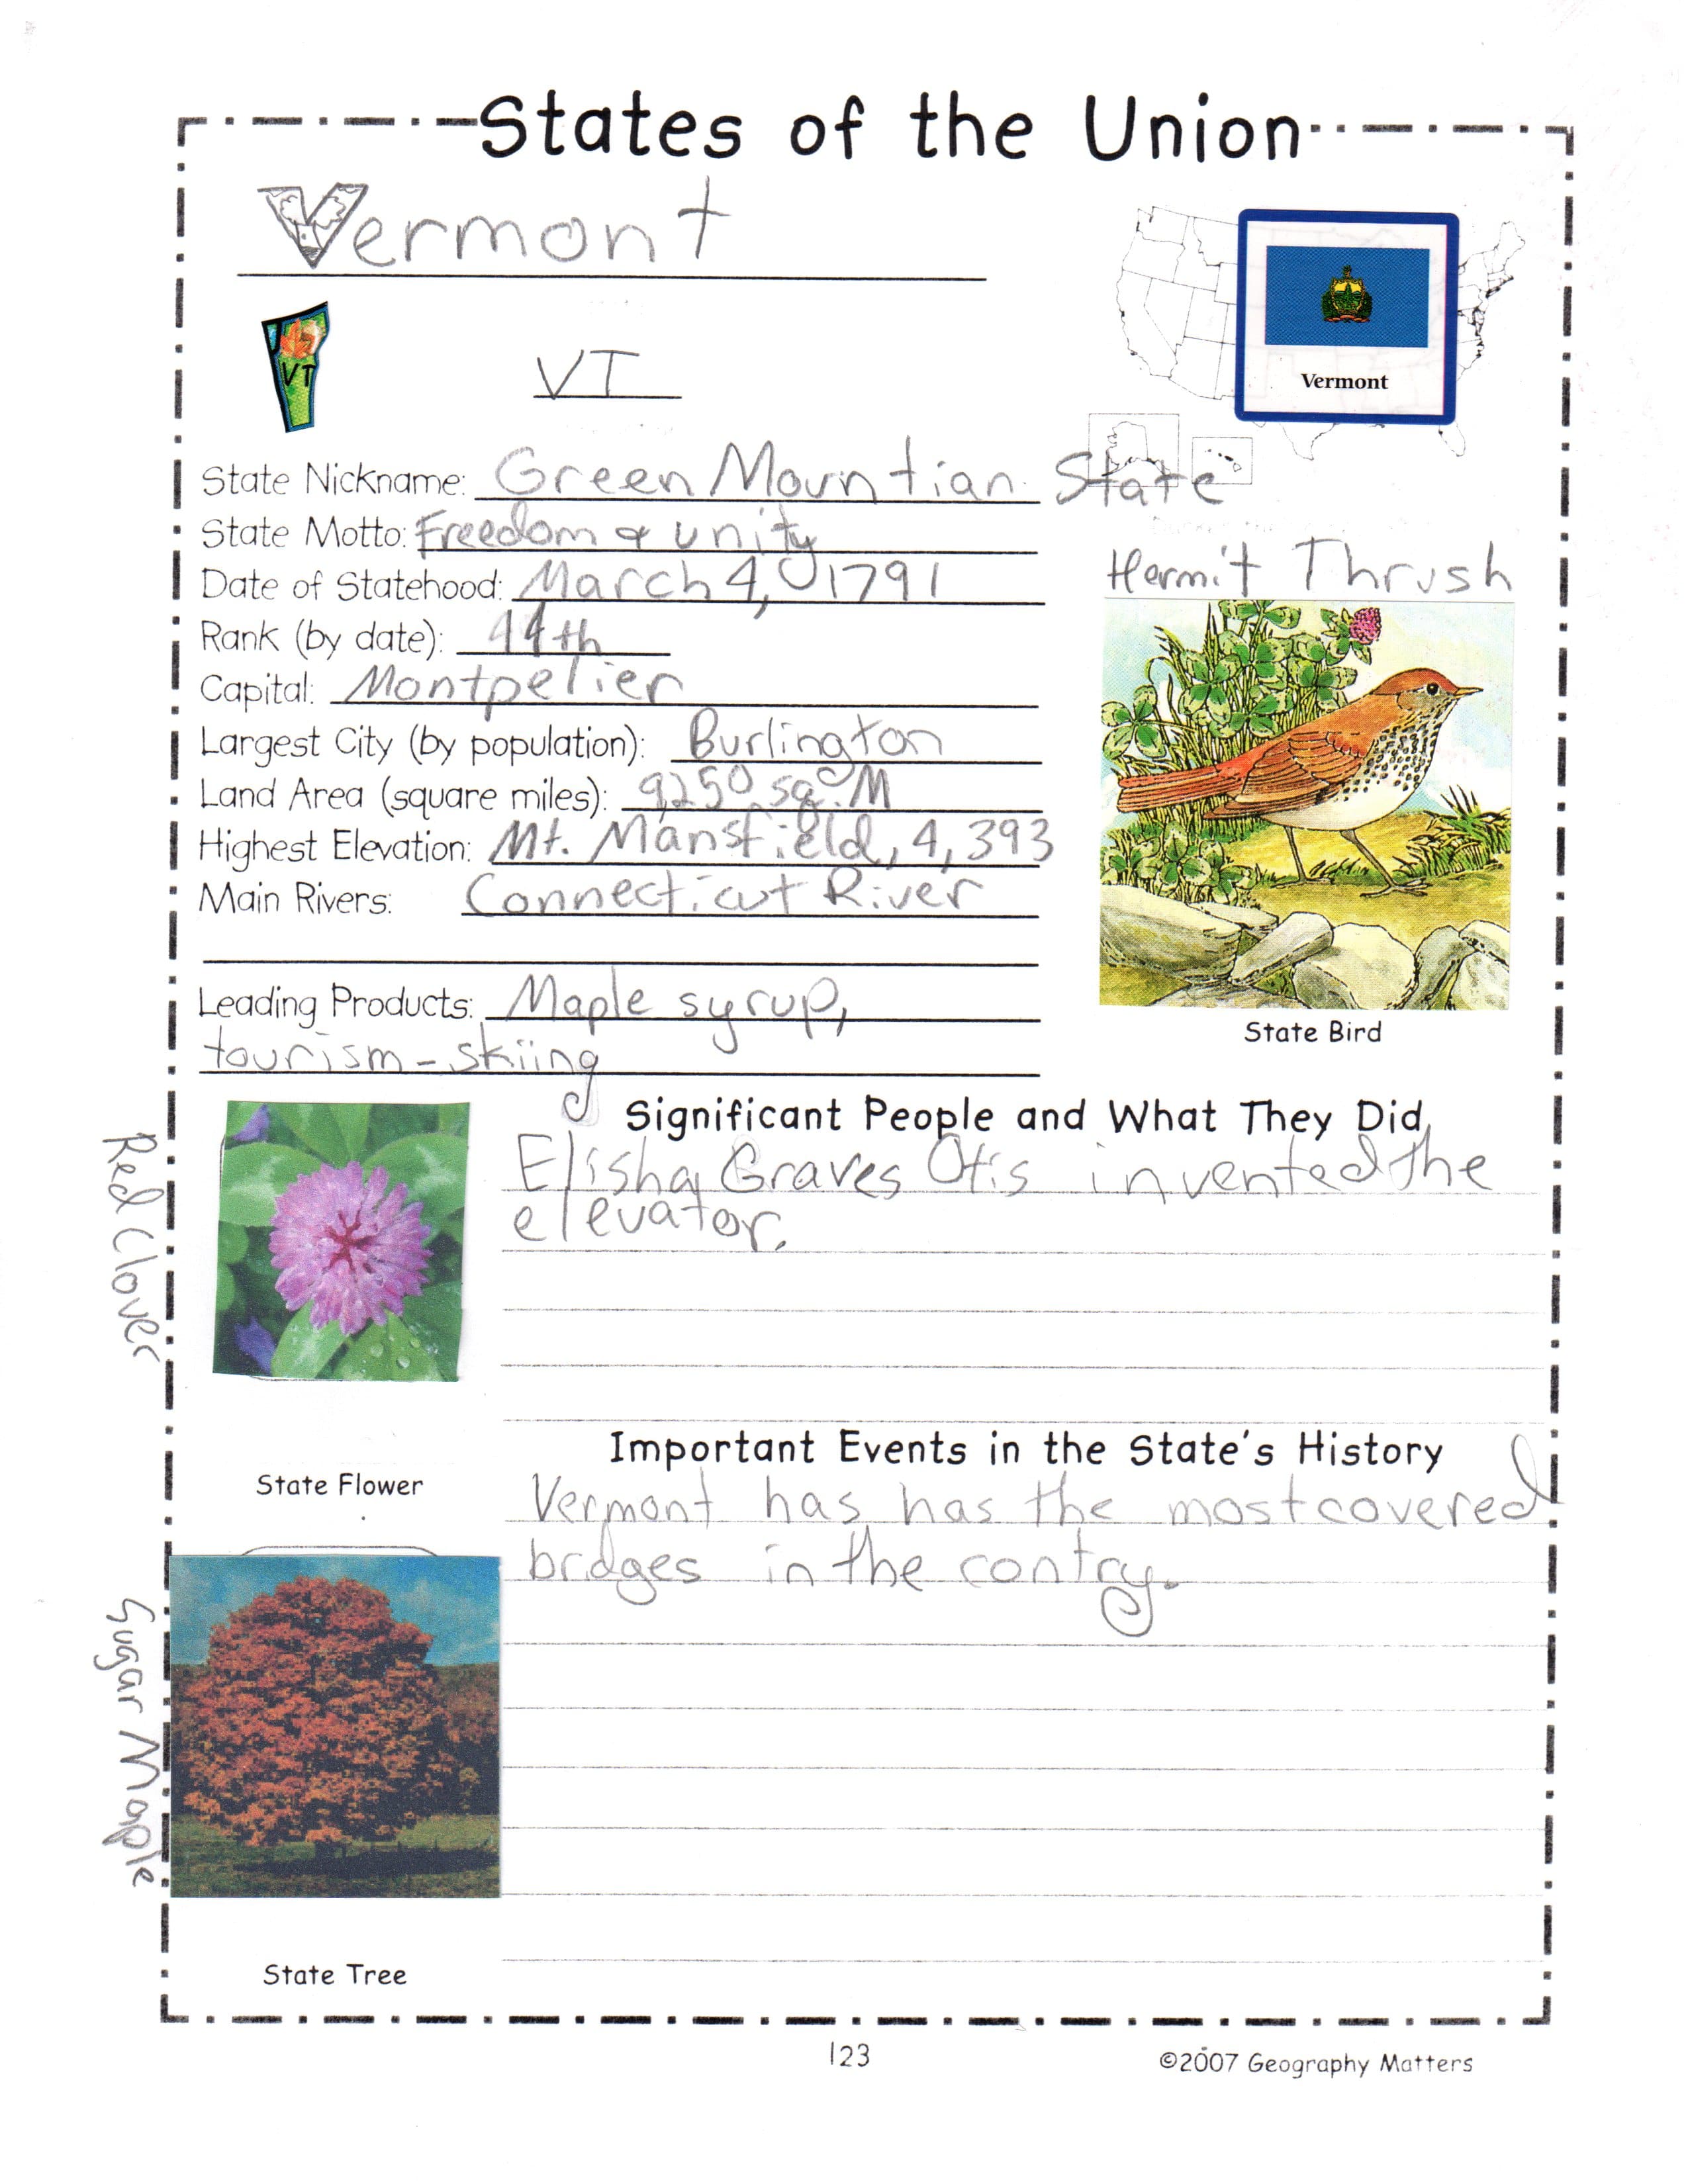 States of the Union
Vermont
VT
VT
Vermont
State Nickname: Green Mountian State
State Motto: Freedom & unity
Date of Statehood: March 4, 1791
Rank (by date): 14th
Capital: Montpelier
Largest City (by population): Burlington
Land Area (square miles): 9250 sq. M
Highest Elevation: Mt. Mansfield, 4,393
Main Rivers: Connecticut River
Leading Products: Maple syrup,
tourism - skiing
Hermit Thrush
State Bird
Red Clover
State Flower
Significant People and What They Did
Elisha Graves Otis invented the
elevator.
Important Events in the State's History
Vermont has has the most covered
bridges in the contry.
Sugar Maple
State Tree
123
©2007 Geography Matters